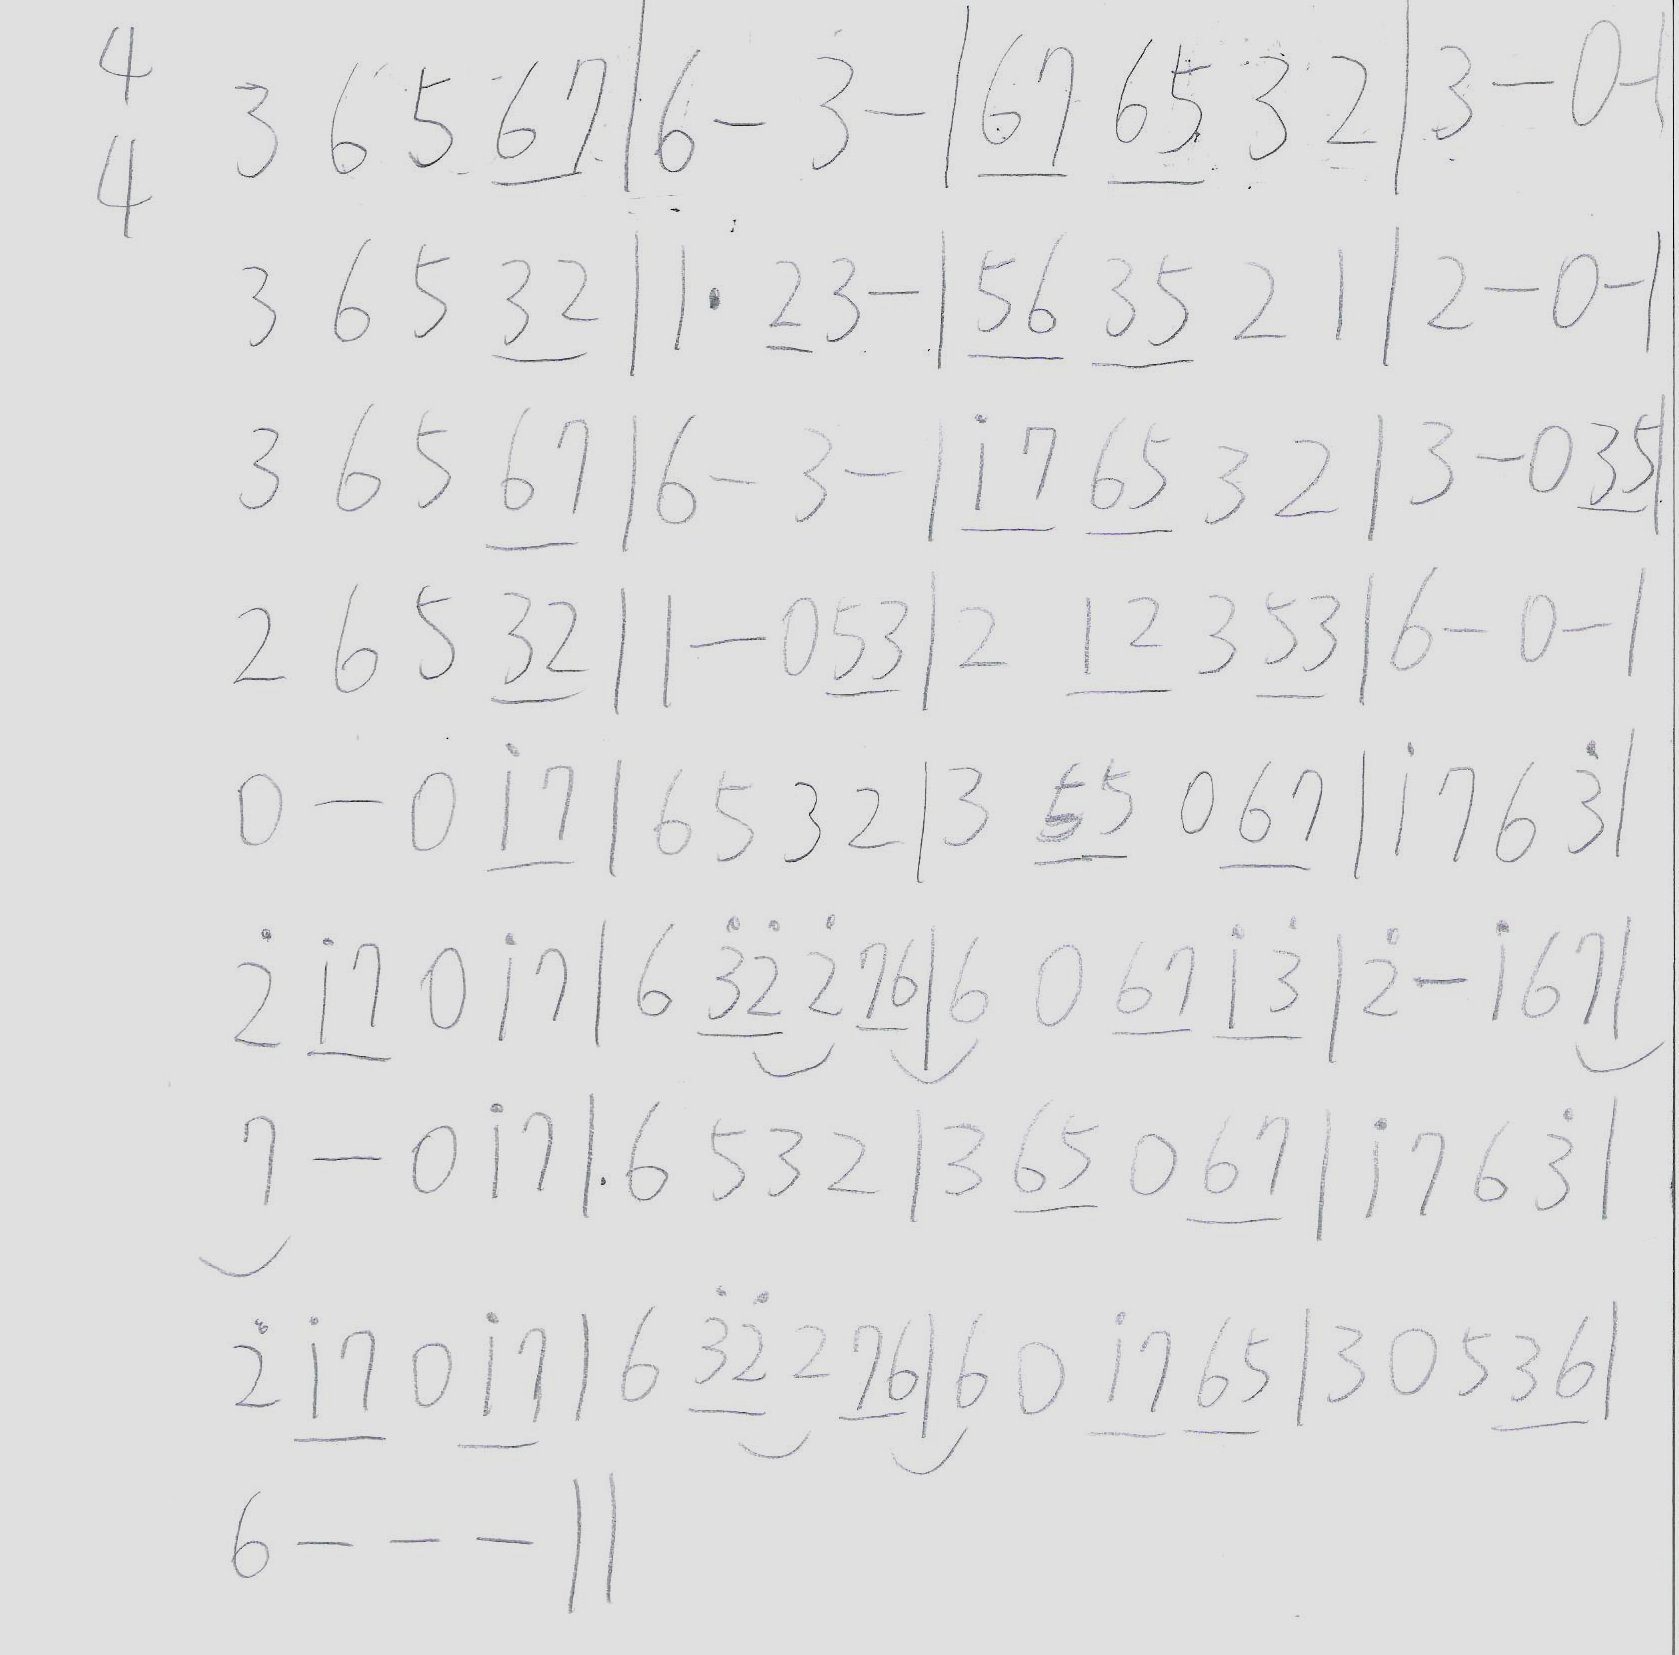 4
4
3 6 5 67 | 6 - 3 - | 67 65 3 2 | 3 - 0 - |
3 6 5 32 | 1· 2 3 - | 56 35 2 1 | 2 - 0 - |
3 6 5 67 | 6 - 3 - | i7 65 3 2 | 3 - 0 35 |
2 6 5 32 | 1 - 0 53 | 2 12 3 53 | 6 - 0 - |
0 - 0 i7 | 6 5 3 2 | 3 55 0 67 | i 7 6 3̇ |
2̇ i7 0 i7 | 6 3̇2̇ 2̇ 76 | 6 0 67 i3̇ | 2̇ - i 67 |
7 - 0 i7 | 6 5 3 2 | 3 65 0 67 | i 7 6 3̇ |
2̇ i7 0 i7 | 6 3̇2̇ 2 76 | 6 0 i7 65 | 3 0 5 36 |
6 - - - ||